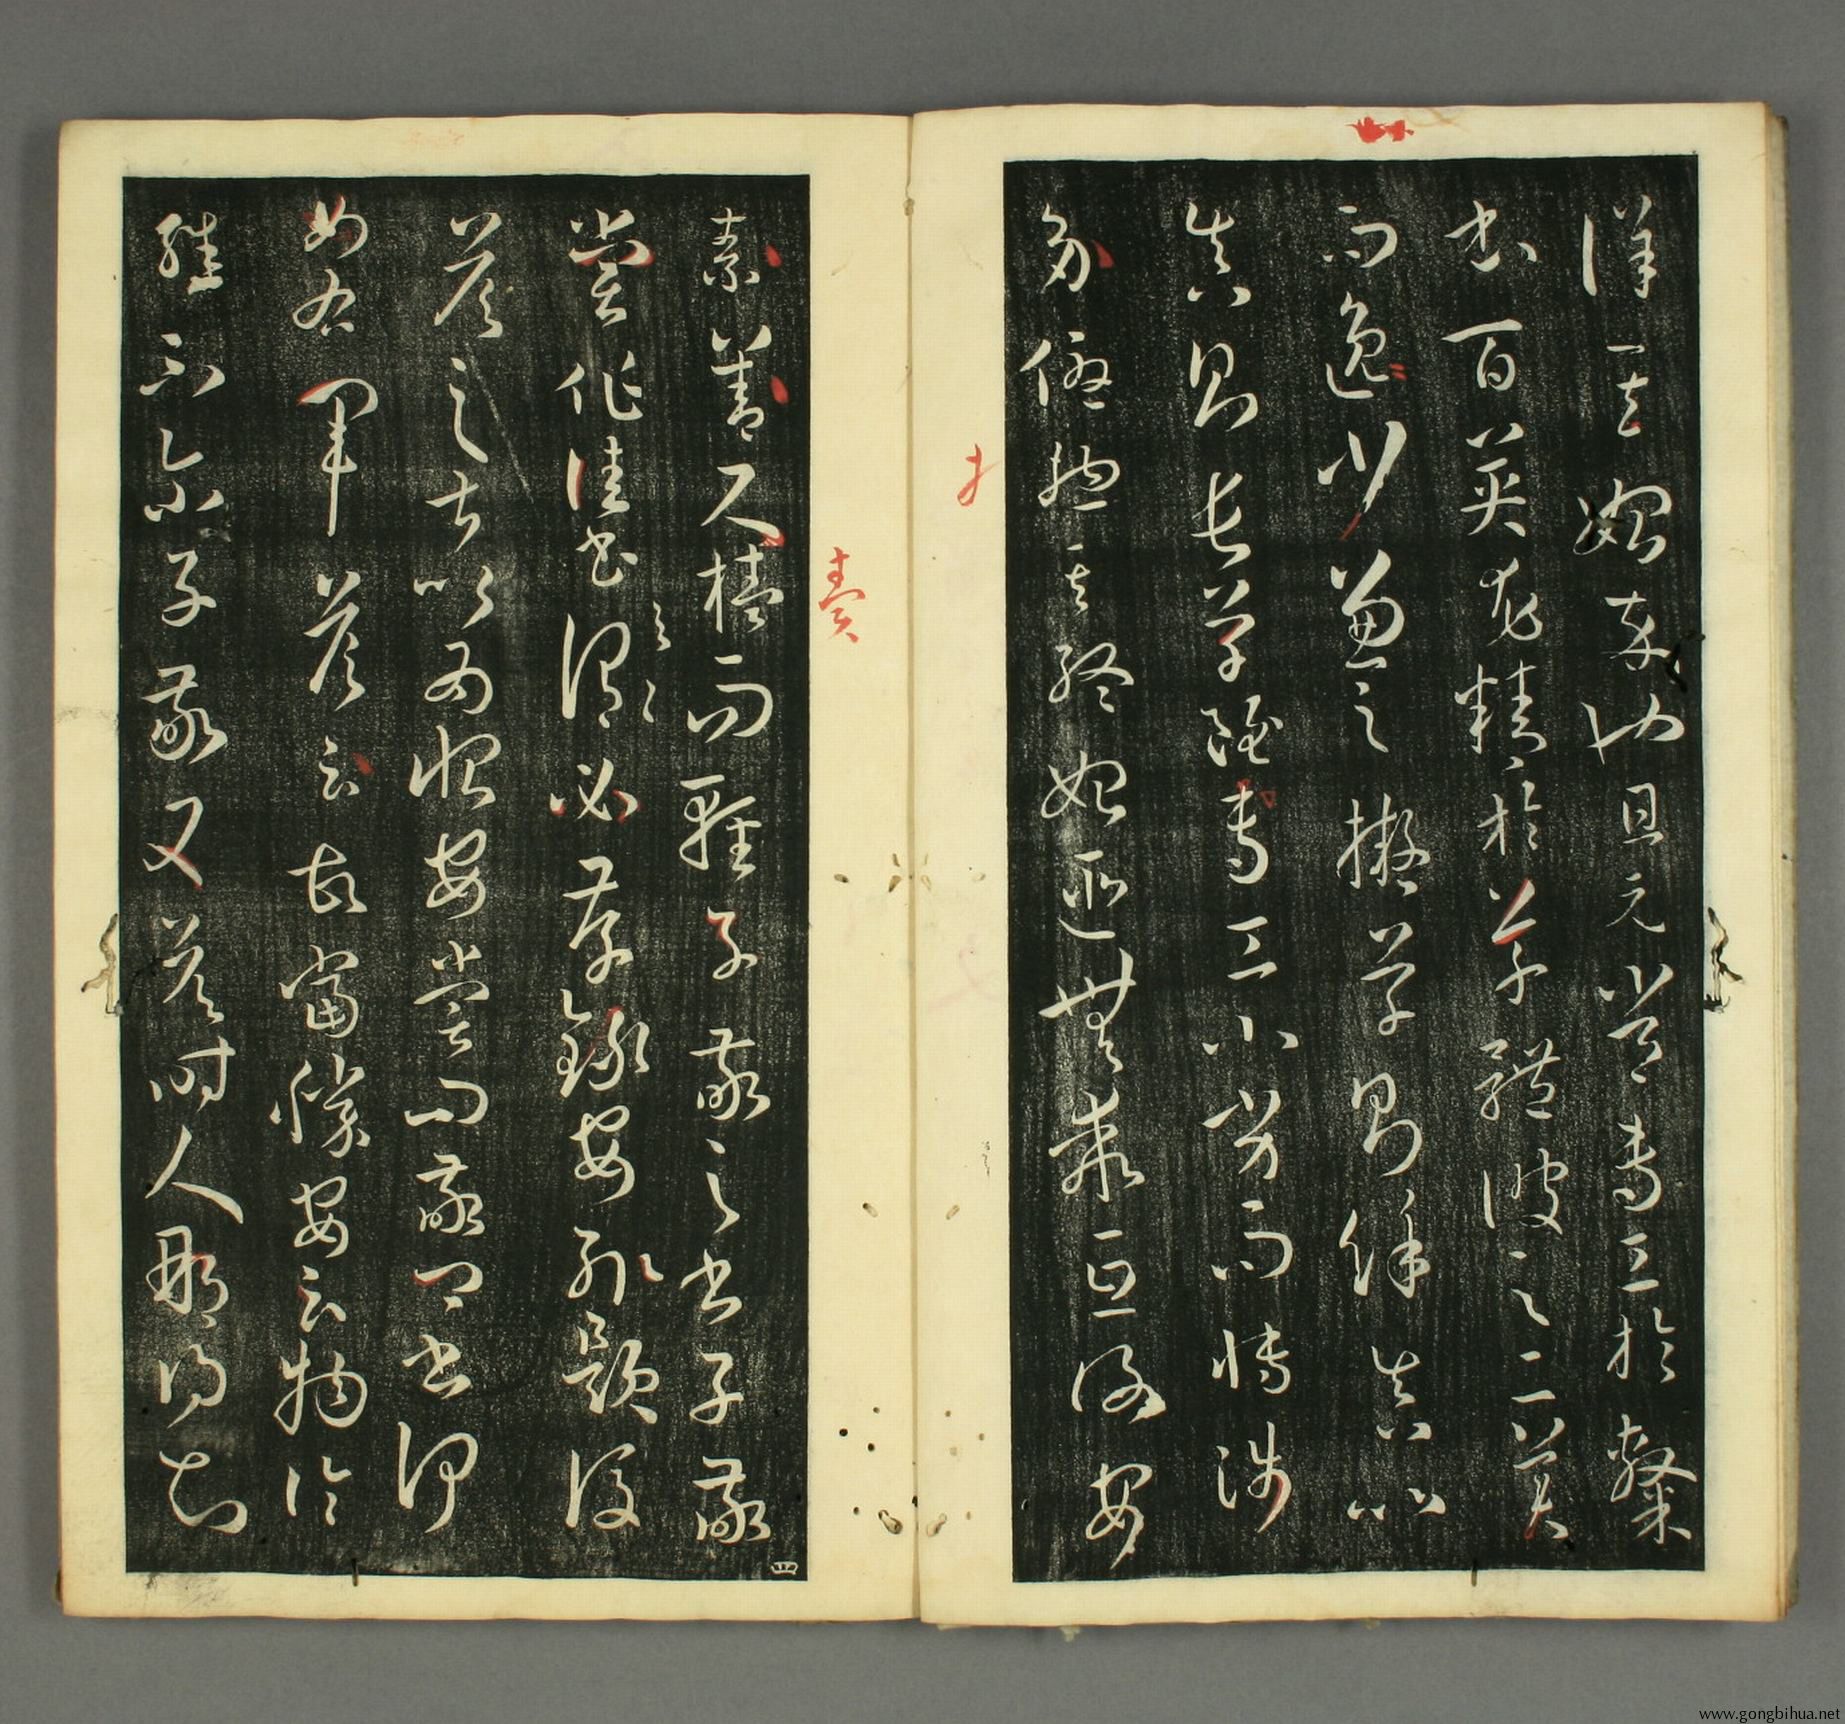 詳其始卒也且元常專工於隸
書百英尤精於草體彼之二美
而逸少兼之擬草則餘真比
真則長草雖專工小劣而博涉
多優摠其終始匪無乖互謝安
素善尺牘而輕子敬之書子敬
嘗作佳書與之謂必存錄安輒題後
答之甚以為恨安嘗問敬卿書何
如右軍答云故當勝安云物論
殊不爾子敬又答時人那得知
四
www.gongbihua.net